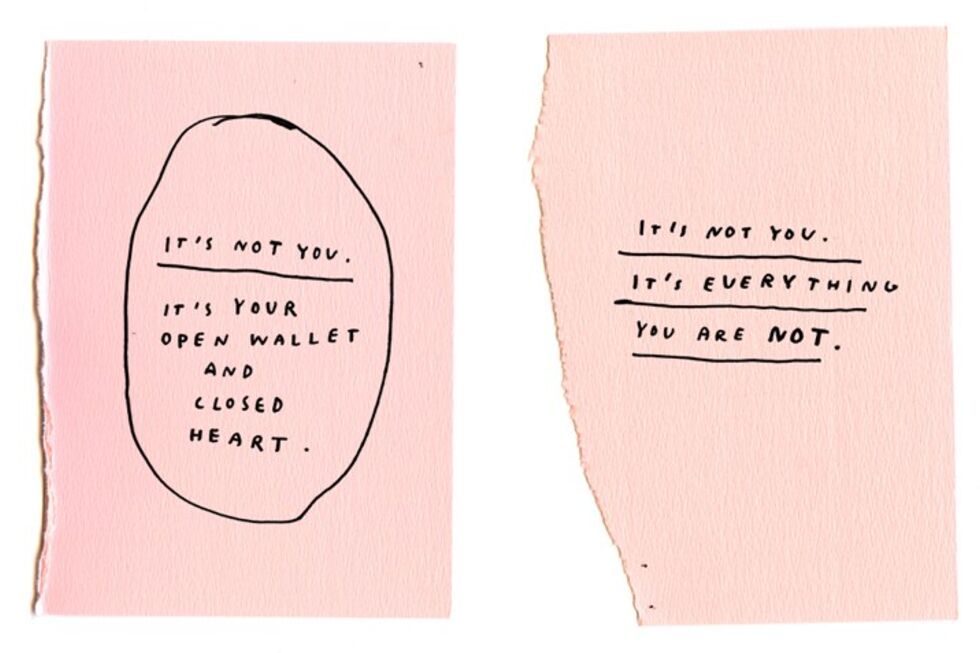 IT'S NOT YOU.
IT'S YOUR
OPEN WALLET
AND
CLOSED
HEART.
IT'S NOT YOU.
IT'S EVERYTHING
YOU ARE NOT.